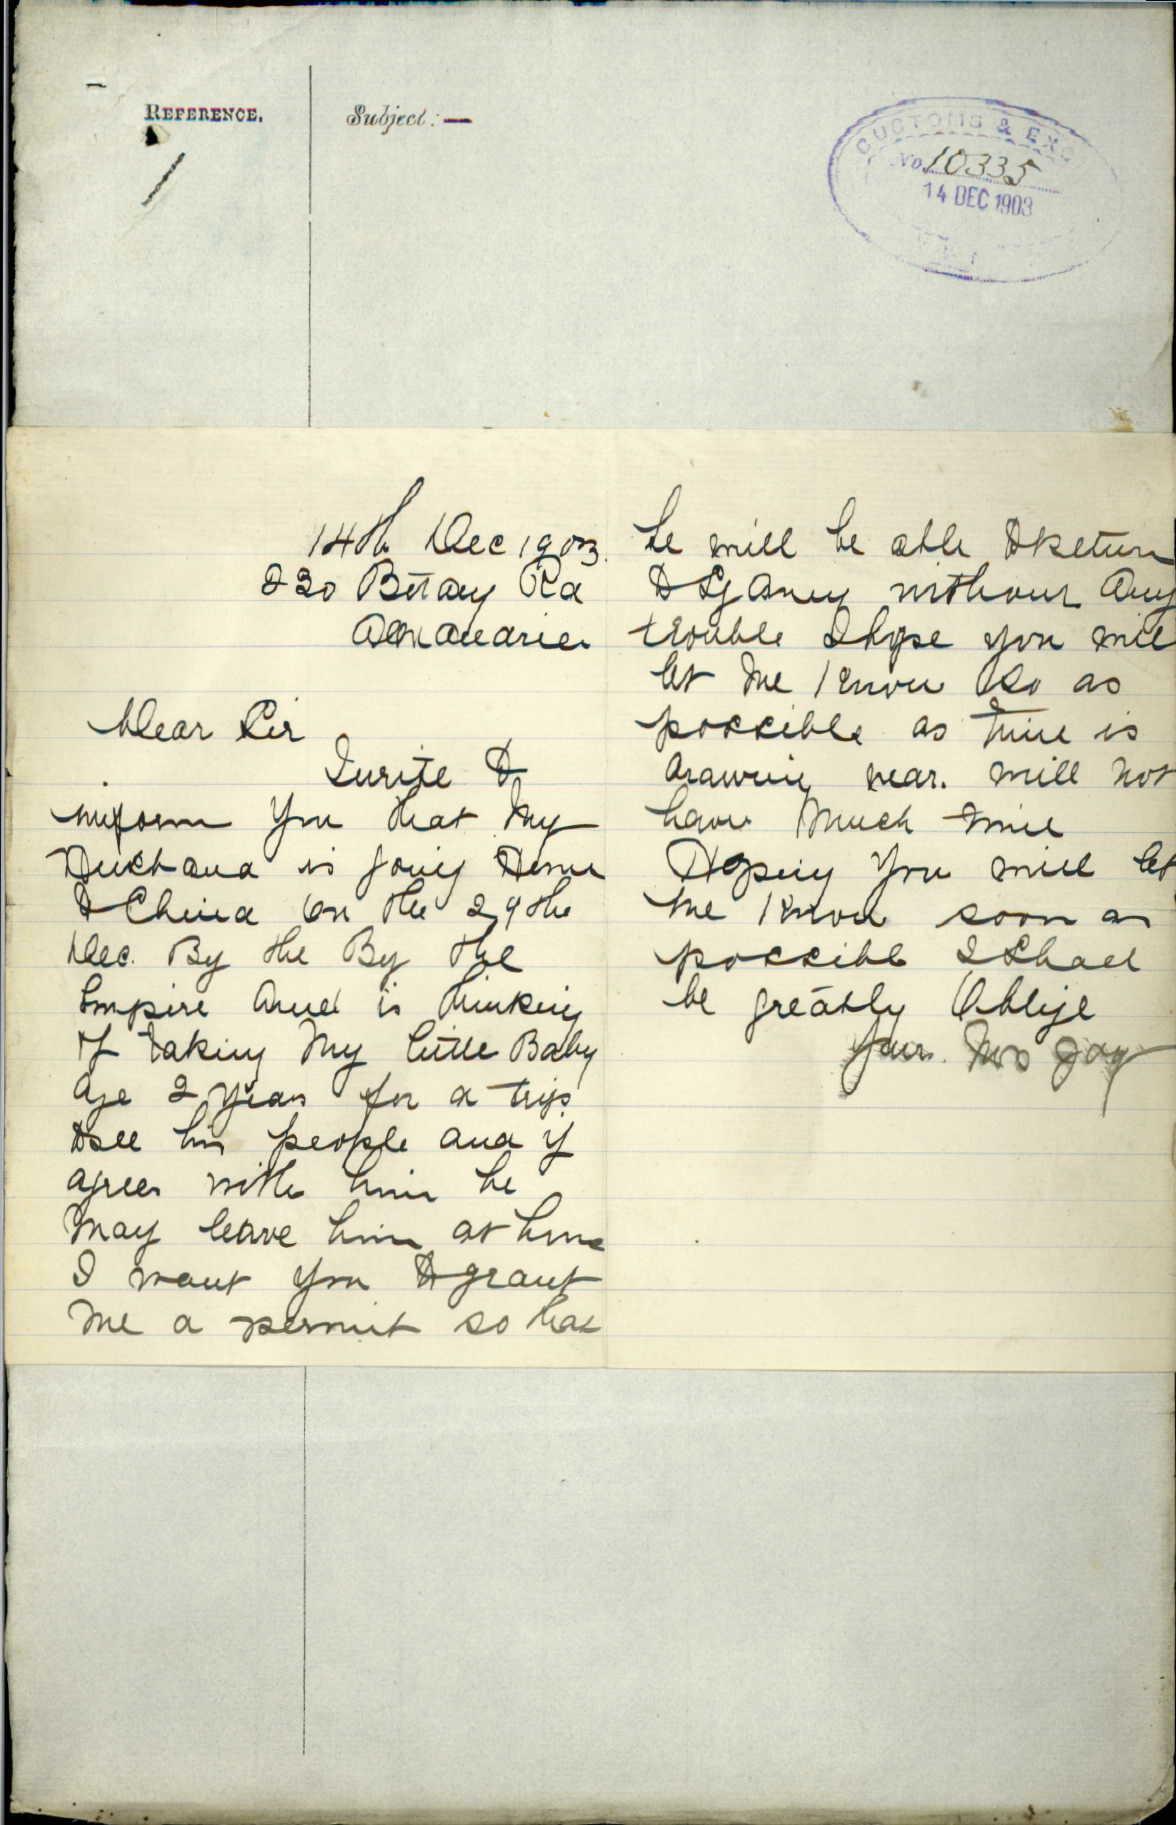 REFERENCE.
Subject:—
CUSTOMS & EXC
No. 10335
14 DEC 1903
14th Dec 1903.
230 Botany Rd
Alexandria
Dear Sir
I write to
inform you that My
Husband is going Home
to China on the 29 the
Dec. By the By the
Empire and is thinking
of taking My little Baby
age 2 years for a trip
to see his people and if
agrees with him he
May leave him at home
I want you to grant
me a permit so that
he will be able to Return
to Sydney without any
trouble I hope you will
let me know so as
possible as time is
drawing near. will not
have Much time
Hoping you will let
me know soon as
possible I shall
be greatly Oblige
Yours. Mrs Jay